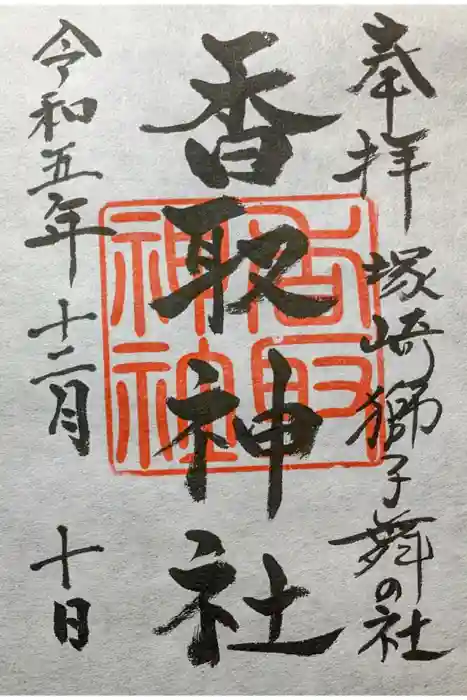 奉拝 塚崎獅子舞の社
香取神社
令和五年十二月十日
香取神社